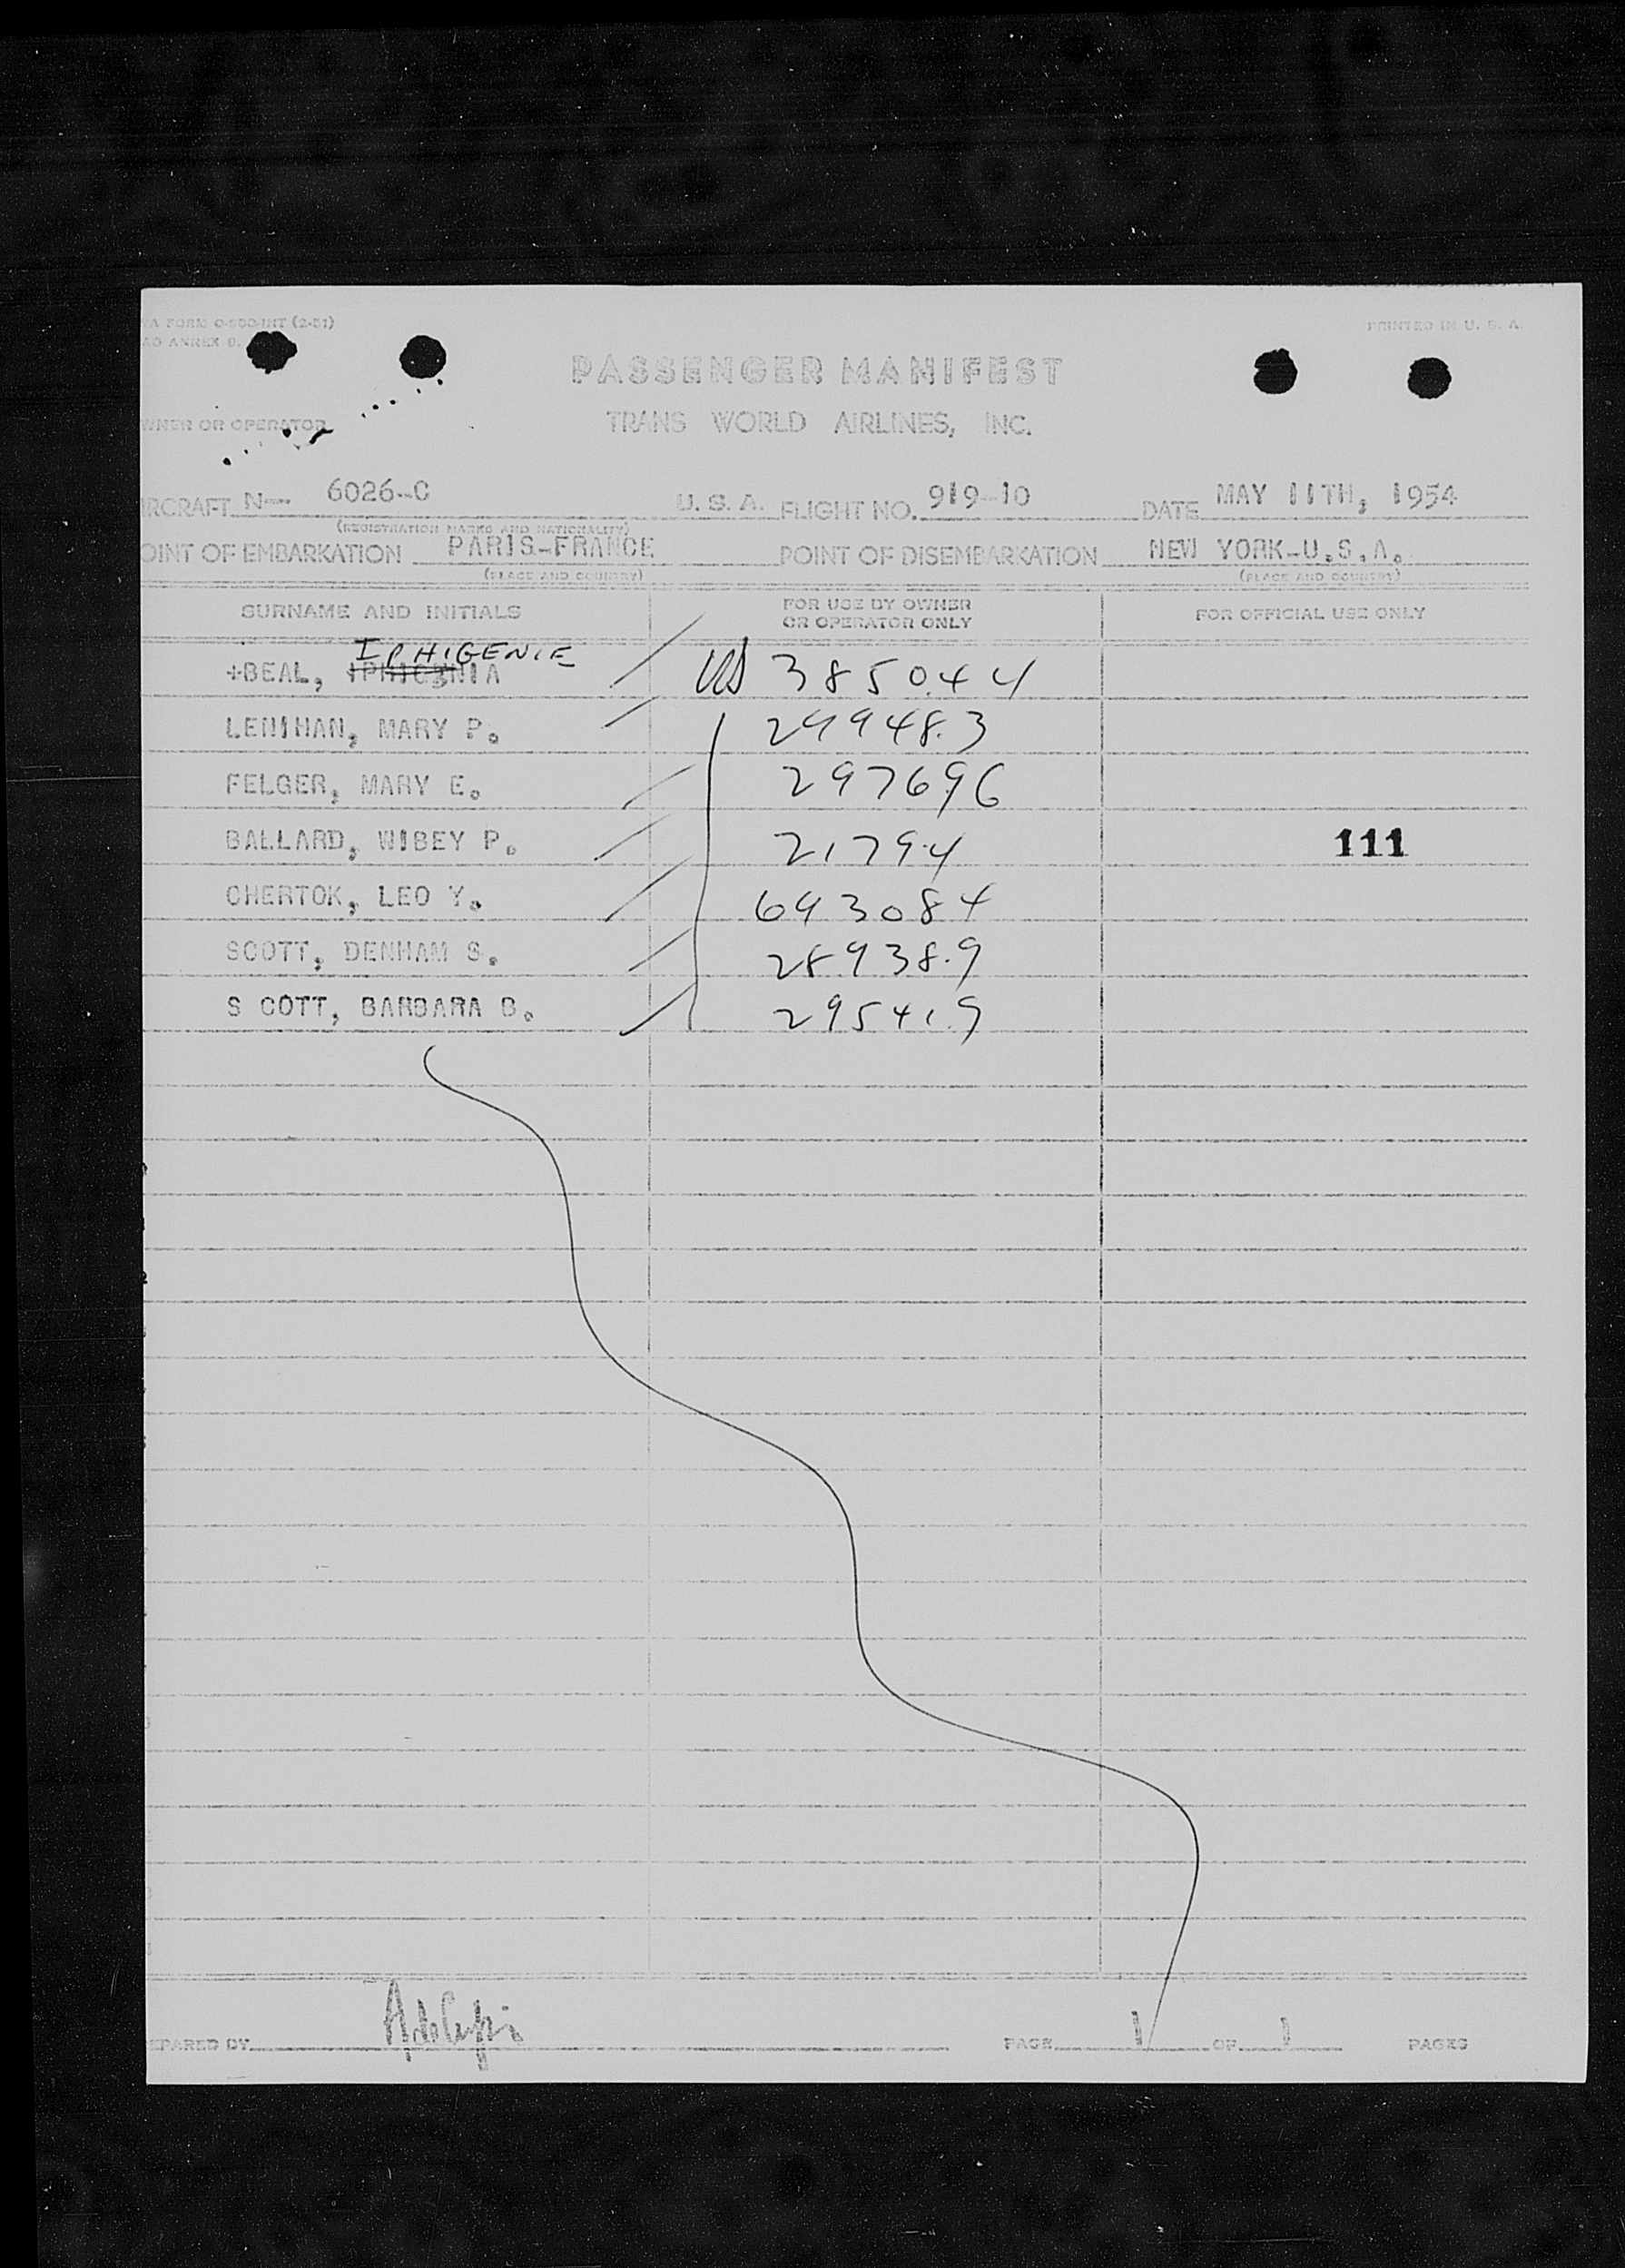 WA FORM O-500-INT (2-51)
PRINTED IN U. S. A.
AO ANNEX 9.
PASSENGER MANIFEST
WNER OR OPERATOR
TRANS WORLD AIRLINES, INC.
IRCRAFT N-- 6026-C U. S. A. FLIGHT NO. 919-10 DATE MAY 11TH, 1954
(REGISTRATION MARKS AND NATIONALITY)
OINT OF EMBARKATION PARIS-FRANCE POINT OF DISEMBARKATION NEW YORK-U.S.A.
(PLACE AND COUNTRY) (PLACE AND COUNTRY)
SURNAME AND INITIALS FOR USE BY OWNER OR OPERATOR ONLY FOR OFFICIAL USE ONLY
IPHIGENIE
+BEAL, IPHIGENIA / US 385044
LENIHAN, MARY P. / 299483
FELGER, MARY E. / 297696
BALLARD, WIBEY P. / 21794 111
CHERTOK, LEO Y. / 693084
SCOTT, DENHAM S. / 289389
S COTT, BARBARA B. / 295419
EPARED BY PAGE 1 OF 1 PAGES